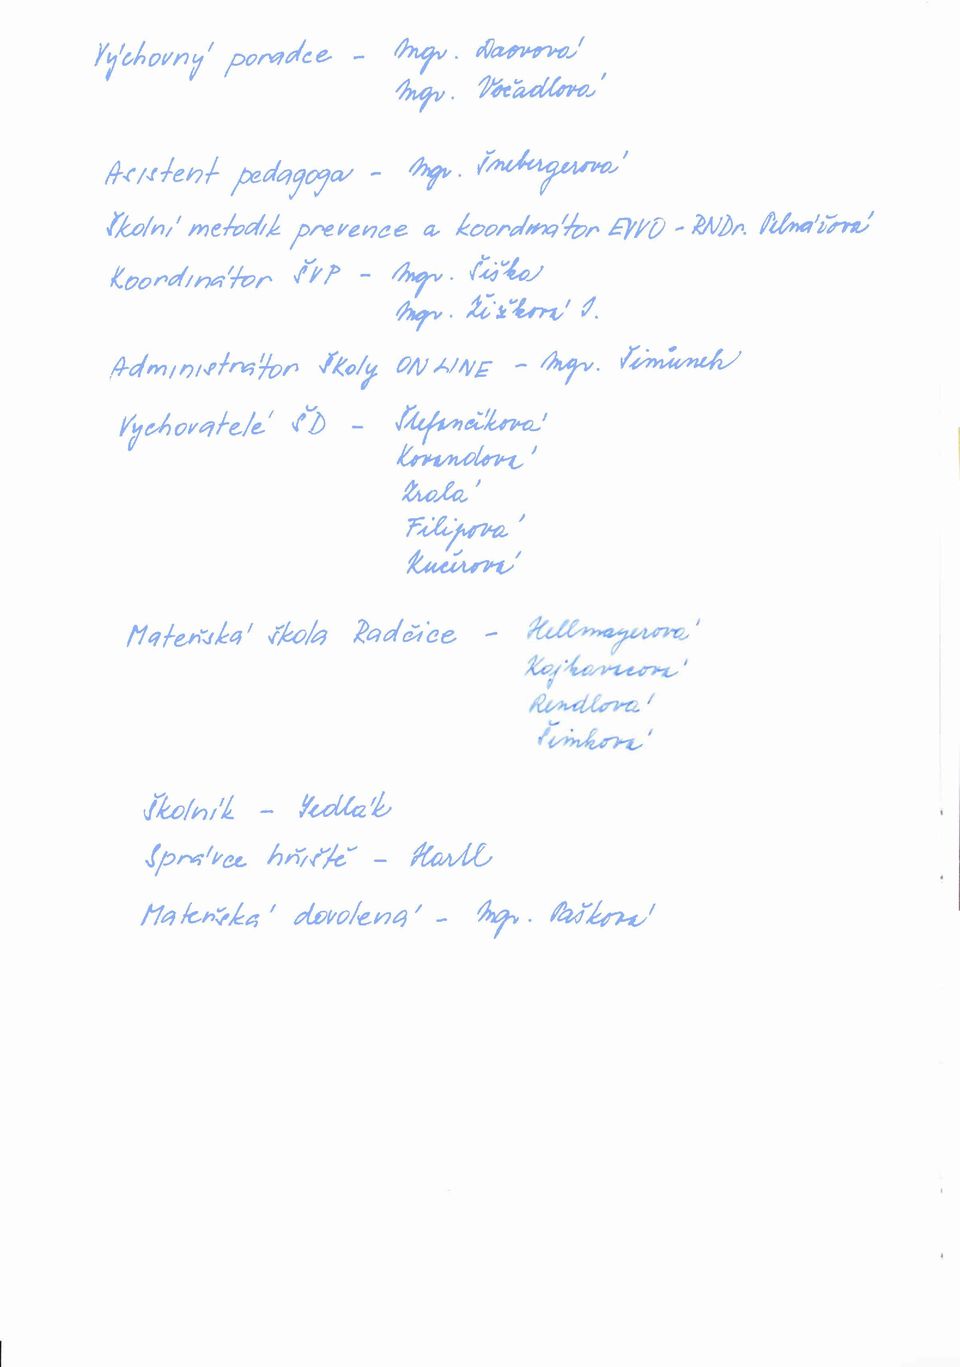 Výchovný poradce - Mgr. Daovová
Mgr. Vočadlová
Asistent pedagoga - Mgr. Šnebergerová
Školní metodik prevence a koordinátor EVVO - RNDr.
Koordinátor ŠVP - Mgr. Šiška
Mgr. Žižková J.
Administrátor Školy ONLINE - Mgr. Šimůnek
Vychovatelé ŠD - Štefančíková
Korandová
Zralá
Filipová
Kučírová
Mateřská škola Radčice - Hellmayerová
Rendlová
Šimková
Školník - Jedlák
Správce hřiště - Hartl
Mateřská dovolená - Mgr. Pašková